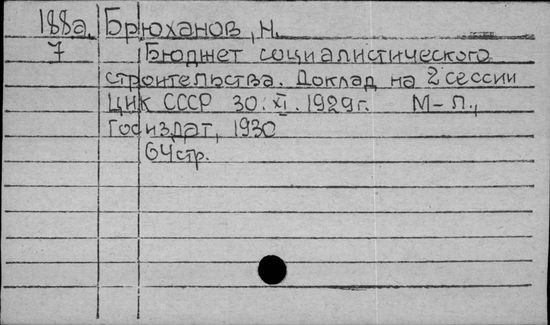 188а. Брюханов, Н.
7 Бюджет социалистического
строительства. Доклад на 2 сессии
ЦИК СССР 30.XI.1929г. М-Л.,
Госиздат, 1930
64стр.